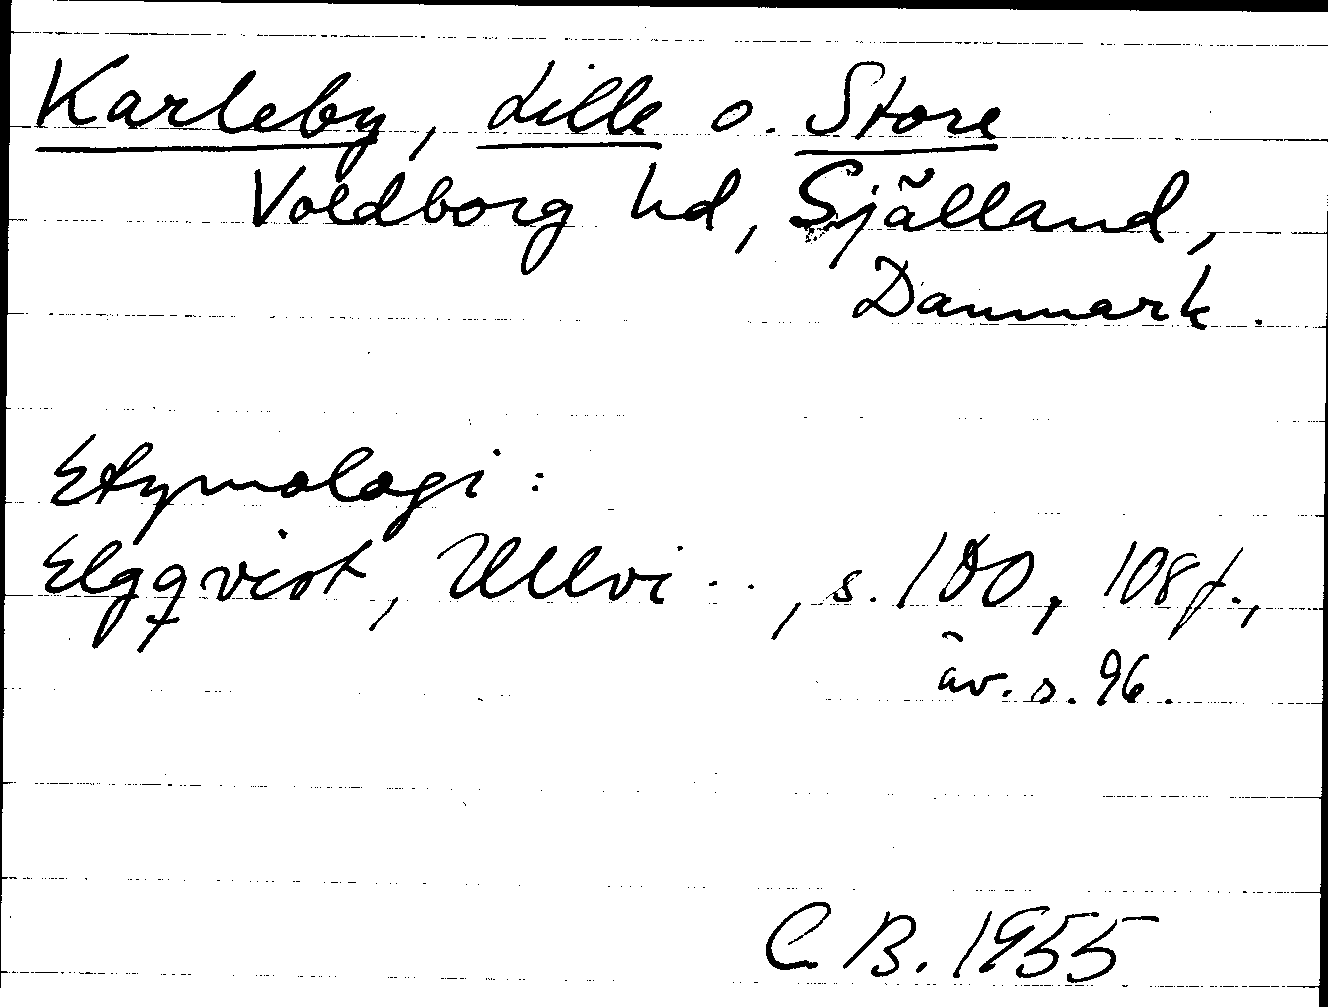 Karleby, Lille o. Store
Voldborg hd, Själland,
Danmark.
Etymologi:
Elgqvist, Ullvi.., s. 100, 108f.,
äv. s. 96.
C. B. 1955